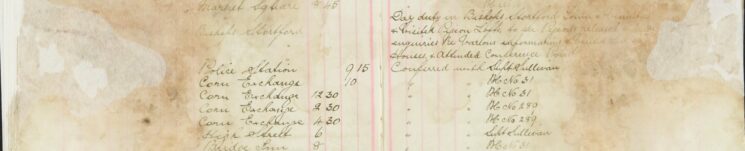 Market Square 8 45
Bishops Stortford
Police Station 9 15
Corn Exchange 10
Corn Exchange 12 30
Corn Exchange 2 30
Corn Exchange 4 30
High Street 6
Bridge Inn 8
Day duty in Bishops Stortford Town
& visited Pigeon Loft to see Pigeons released
enquiries re various information
& Attended Conference
Conferred with Supt Sullivan
" " PC No 31
" " PC No 31
" " PC No 289
" " PC No 289
" " Supt Sullivan
" " PC No 31